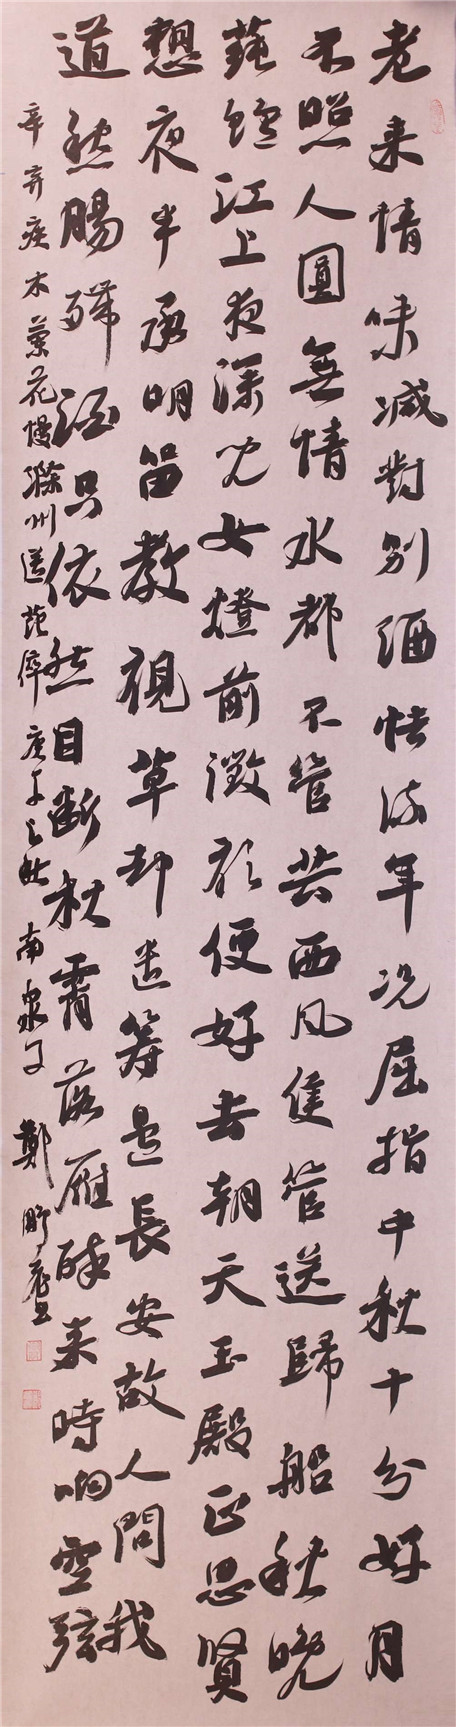 老来情味减對别酒怯流年况屈指中秋十分好月
不照人圓無情水都不管共西风隻管送歸船秋晚
蒓鱸江上夜深兒女燈前徵衫便好去朝天玉殿正思賢
想夜半承明留教視草却遣筹边長安故人問我
道愁腸殢酒只依然目断秋霄落雁醉来時响空弦
辛弃疾木蘭花慢滁州送范倅庚子之秋南泉子鄭野书